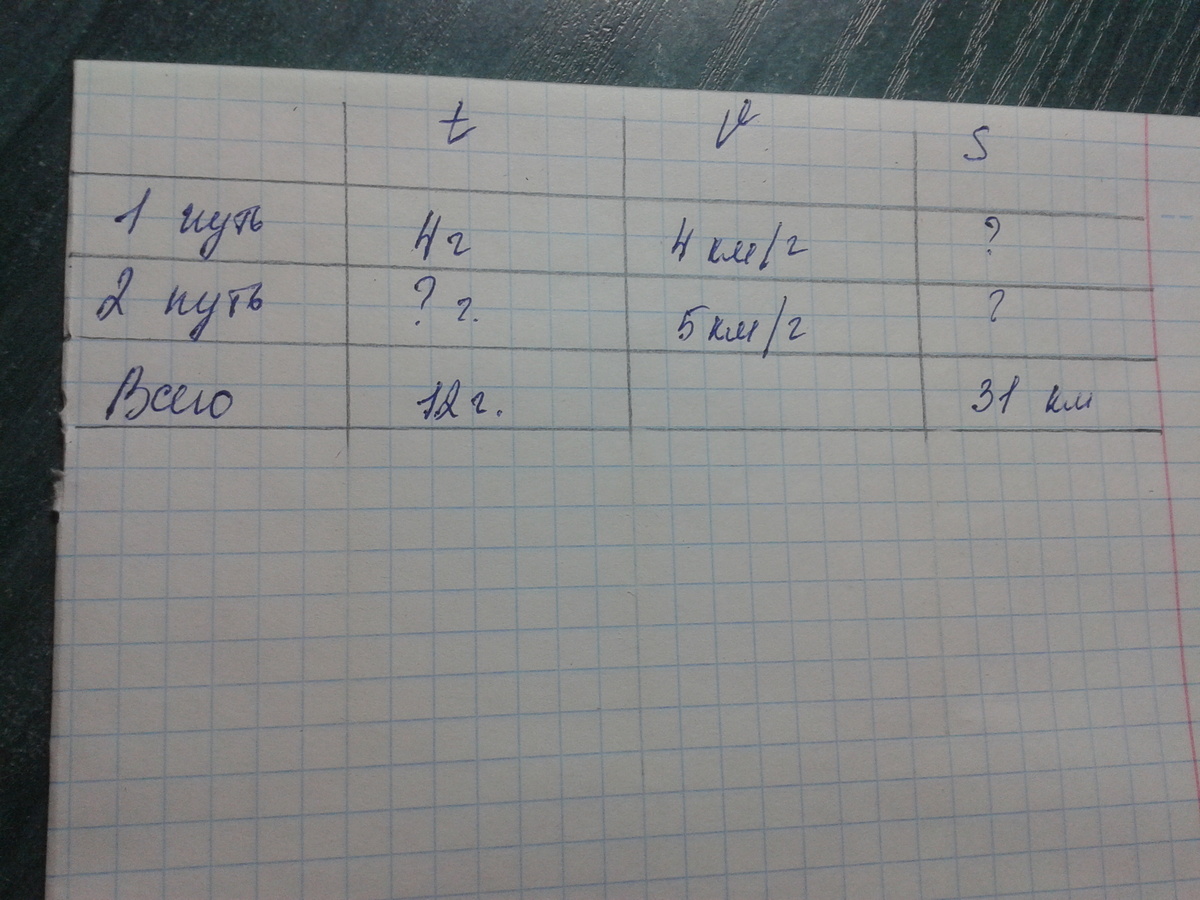 t v s
1 путь 4г 4 км/г ?
2 путь ? г. 5 км/г ?
Всего 12 г. 31 км